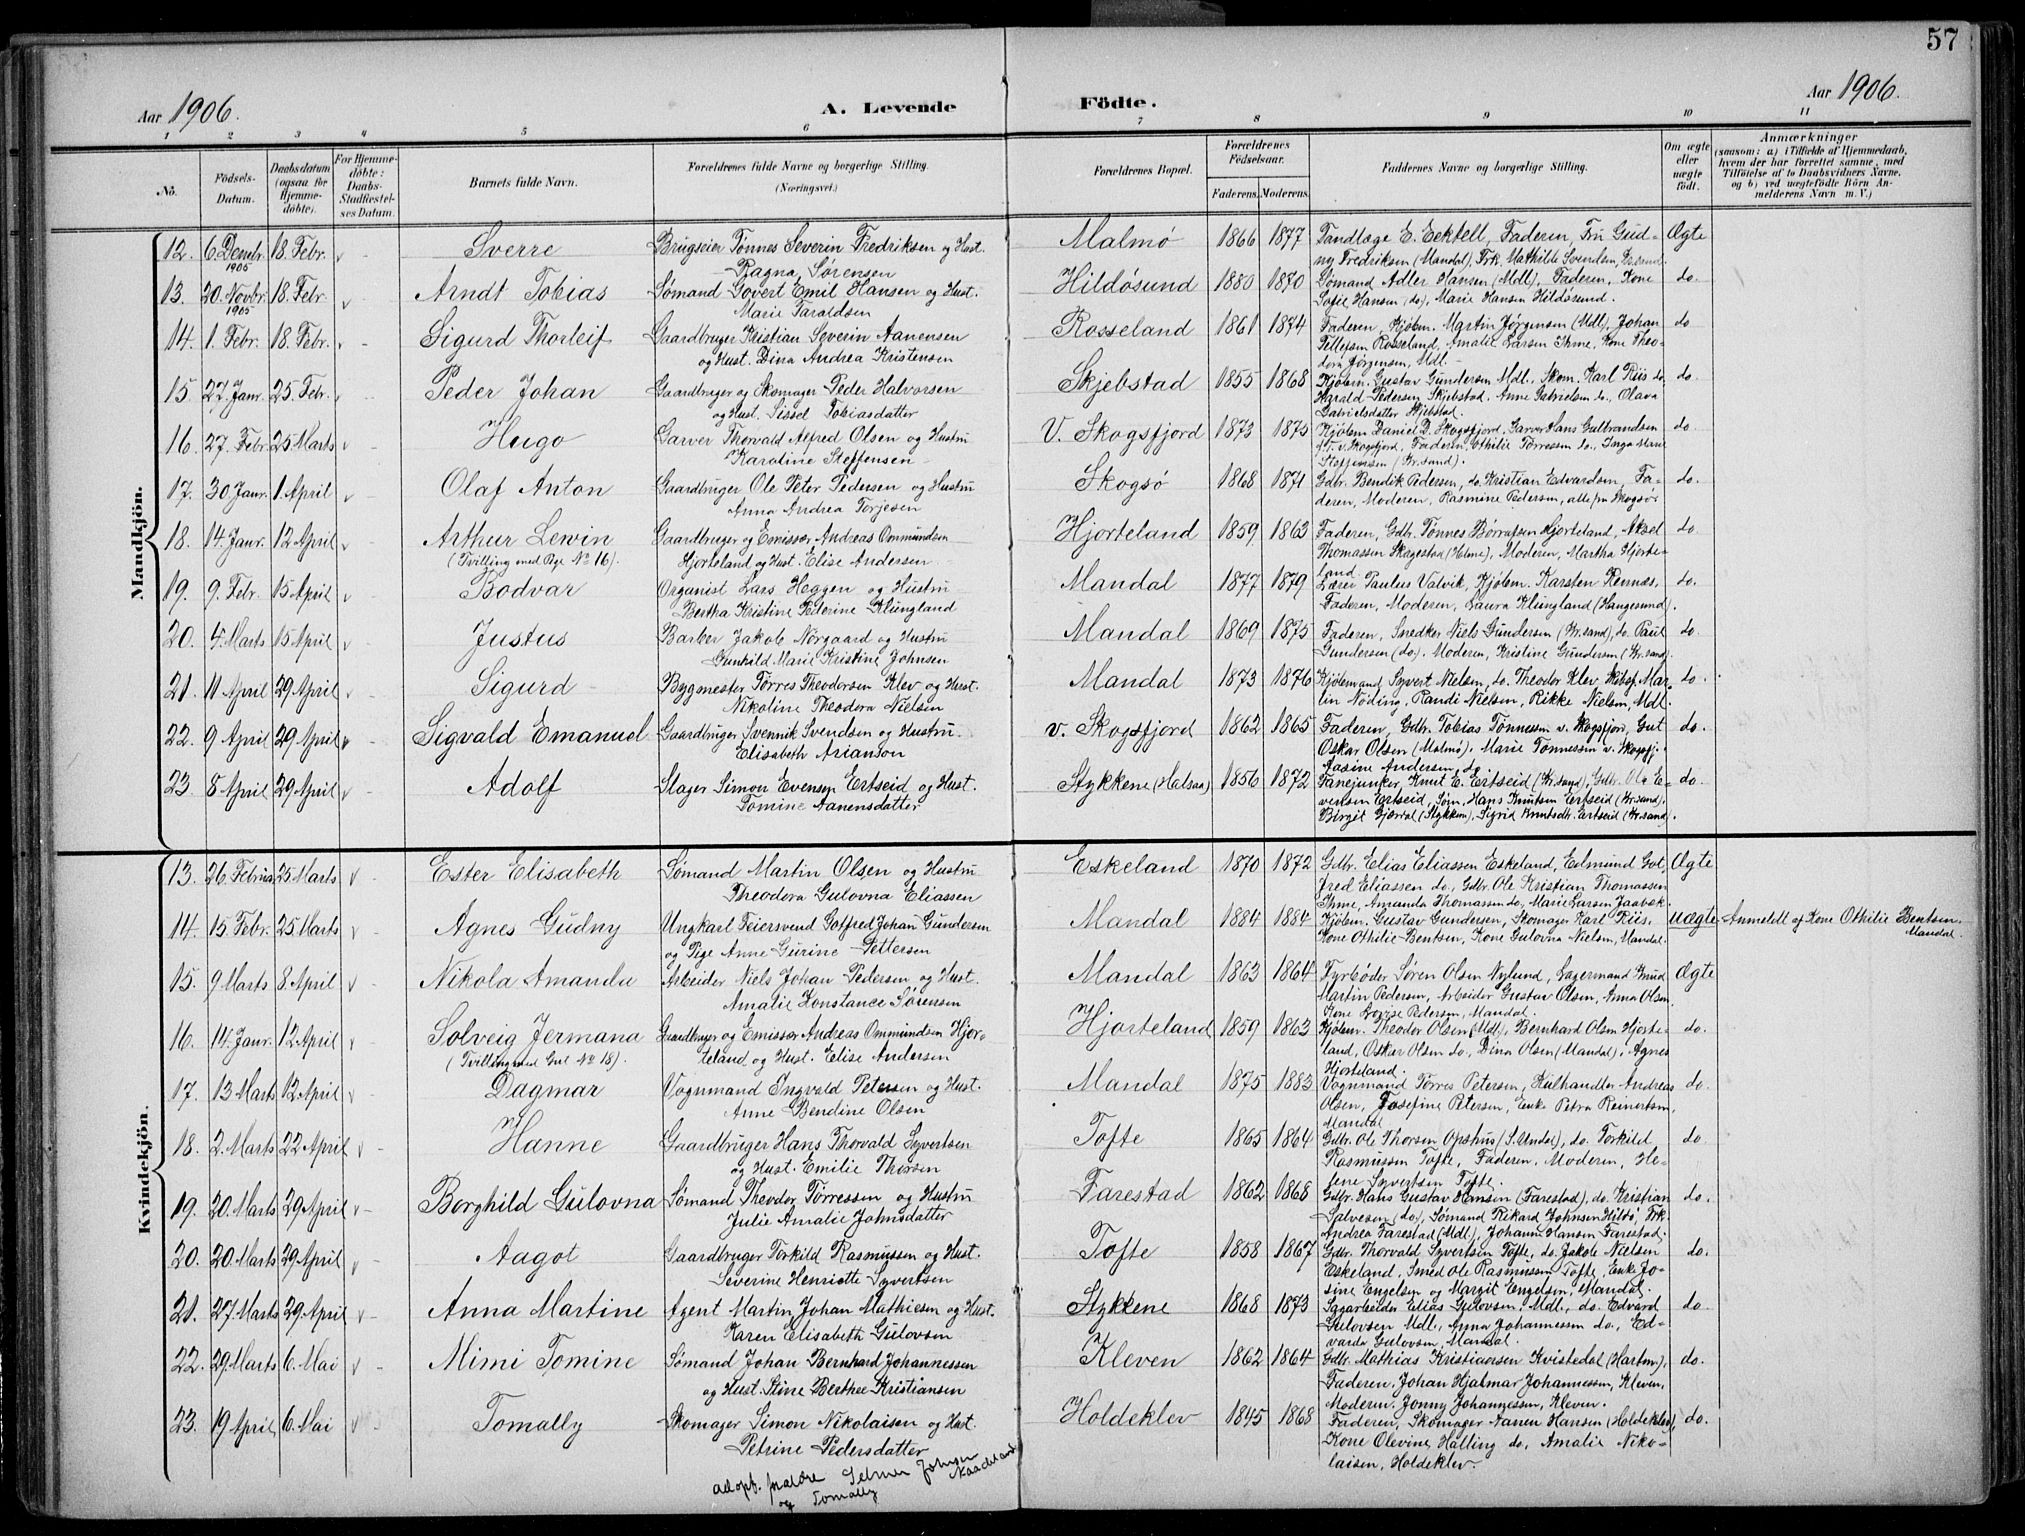 57
Aar 1906.
A. Levende Födte.
Aar 1906.
1 2 3 4 5 6 7 8 9 10 11
No.
Födsels-Datum.
Daabsdatum (ogsaa för Hjemme-döbte).
For Hjemme-döbte: Daabs-Stadfæstel-ses Datum.
Barnets fulde Navn.
Forældrenes fulde Navne og borgerlige Stilling. (Næringsvei.)
Forældrenes Bopæl.
Forældrenes Födselsaar.
Faderens. Moderens.
Faddernes Navne og borgerlige Stilling.
Om ægte eller uægte födt.
Anmærkninger
(saasom: a) i Tilfælde af Hjemmedaab, hvem der har forrettet samme, med Tilföielse af to Daabsvidners Navne, og b) ved uægtefödte Börn An-melderens Navn m. V.)
Mandkjön.
12. 6 Decmbr. 18. Febr. Sverre Brugseier Tønnes Severin Fredriksen og Hust. Malmø 1866 1877 Tandlæge E. Eektell, Faderen, Fru Gud- Ægte
1905 Ragna Sørensen ny Fredriksen (Mandal), Frk. Mathilde Svendsen, Kr.sand.
13. 20. Novbr. 18. Febr Arndt Tobias Sømand Govert Emil Hansen og Hust. Hildøsund 1880 1870 Sømand Adler Hansen (Mdl), Faderen, Kone do.
1905 Marie Taraldsen Sofie Hansen (do), Marie Hansen Hildøsund.
14. 1. Febr. 18. Febr. Sigurd Thorleif Gaardbruger Kristian Severin Aanensen Rosseland 1861 1874 Faderen, Kjøbm. Martin Jørgensen (Mdl), Johan do
og Hust. Dina Andrea Kristensen Tellefsen Rosseland, Amalie Larsen Ihme, Kone Theo-
dora Jørgensen, Mdl.
15. 27. Janr. 25. Febr. Peder Johan Gaardbruger og Skomager Peder Halvorsen Skjebstad 1855 1868 Kjøbm. Gustav Gundersen Mdl. Skom. Karl Riis do, do.
og Hust. Sissel Tobiasdatter Harald Pedersen Skjebstad, Anne Gabrielsen do., Olava
Gabrielsdatter Skjebstad.
16. 27. Febr. 25 Marts Hugo Garver Thorvald Alfred Olsen og Hustru V. Skogsfjord 1873 1875 Kjøbm Daniel D. Skogsfjord, Garver Hans Gulbrandsen do.
Karoline Steffensen f.T. v. Skogsfjord, Faderen, Othilie Tørressen do., Inga Marie
Steffensen (Kr.sand).
17. 30 Janr. 1. April Olaf Anton Gaardbruger Ole Peter Pedersen og Hustru Skogsø 1868 1871 Gdbr. Bendik Pedersen, do. Kristian Edvardsen, Fa- do.
Anna Andrea Torjesen deren, Moderen, Rasmine Pedersen, alle fra Skogsø
18. 14. Janr. 12 April Arthur Lewin Gaardbruger og Emissær Andreas Ommundsen Hjorteland 1859 1863 Faderen, Gdbr. Tønnes Børrufsen Hjorteland, Aksel do.
(Tvilling med Pge No 16). Hjorteland og Hust. Elise Andersen Thomassen Skagestad (Holme), Moderen, Martha Hjorte-
land.
19. 9. Febr. 15 April Bodvar Organist Lars Heggen og Hustru Mandal 1877 1879 Lærer Paulus Valvik, Kjøbm. Karsten Rennæs, do.
Bertha Kristine Peterine Klungland Faderen, Moderen, Laura Klungland (Haugesund).
20. 4. Marts 15 April Justus Barber Jakob Nørgaard og Hustru Mandal 1869 1875 Faderen, Snedker Niels Gundersen (Kr.sand), do. Paul do.
Gunhild Marie Kristine Johnsen Gundersen (do). Moderen, Kristine Gundersen (Kr.sand).
21. 11 April 29 April Sigurd Bygmester Tørres Theodorsen Klev og Hust. Mandal 1873 1876 Kjøbmand Syvert Nielsen, do. Theodor Klev, Skibsf. Mar- do.
Nikoline Theodora Nielsen tin Nøding, Randi Nielsen, Rikke Nielsen, Mdl.
22. 9 April 29 April Sigvald Emanuel Gaardbruger Svennik Svendsen og Hustru. v. Skogsfjord 1862 1865 Faderen, Gdbr. Tobias Tønnessen v. Skogsfjor, Gut do.
Elisabeth Arianson Oskar Olsen (Malmø). Marie Tønnessen v. Skogsfj.
Aasine Andersen, do
23. 8 April 29 April Adolf Slager Simon Evensen Ertseid og Hust. Stykkene (Halsaa) 1856 1872 Fanejunker Knut E. Ertseid (Kr.sand), Gdbr. Ola E- do.
Tomine Aanensdatter vertsen Ertseid, Søn. Hans Knutsen Ertseid (Kr.sand).
Birgit Gjærdal (Stykken), Sigrid Knutsdtr. Ertseid (Kr.sand).
Kvindekjön.
13. 26. Februa 25 Marts Ester Elisabeth Sømand Martin Olsen og Hustru Eskeland 1870 1872 Gdbr. Elias Eliassen Eskeland, Edmund Got, Ægte
Theodora Gulovna Eliassen fred Eliassen do., Gdbr. Ole Kristian Thomassen
Ihme, Amanda Thomassen do, Marie Larsen Jaabæk.
14. 15 Febr. 25 Marts Agnes Gudny Ungkarl Feiersvend Gotfred Johan Gundersen Mandal 1884 1884 Kjøbm. Gustav Gundersen, Skomager Karl Riis. uægte Anmeldt af Kone Othilie Bentsen.
og Pige Anne Gurine Pettersen Kone Othilie Bentsen, Kone Gulovna Nielsen, Mandal. Mandal.
15. 9 Marts 8 April Nikola Amanda Arbeider Niels Johan Pedersen og Hust. Mandal 1863 1864 Fyrbøder Søren Olsen Nylund, Lagermand Knud Ægte
Amalie Konstance Sørensen Martin Pedersen, Arbeider Gustav Olsen, Anna Olsen,
Kone Lovise Pedersen, Mandal.
16. 14. Janr. 12 April Solveig Jermana Gaardbruger og Emissær Andreas Ommundsen Hjor- Hjorteland 1859 1863 Kjøbm. Theodor Olsen (Mdl), Bernhard Olsen Hjorte- do.
(Tvilling med Gut No 18). teland og Hust. Elise Andersen land, Oskar Olsen do, Dina Olsen (Mandal), Agnes
Hjorteland.
17. 13 Marts 12 April Dagmar Vognmand Ingvald Petersen og Hust. Mandal 1875 1883 Vognmand Tørres Petersen, Kulhandler Andreas do.
Anne Bendine Olsen Olsen, Josefine Petersen, Enke Petra Reinertsen,
Mandal
18. 2. Marts 22 April Hanne Gaardbruger Hans Thorvald Syvertsen Tofte 1865 1864 Gdbr. Ole Thorsen Opshus (S. Undal), do. Torkild do.
og Hust. Emilie Thorsen Rasmussen Tofte, Faderen, Moderen, He-
lene Syvertsen Tofte.
19. 20. Marts 29 April Borghild Gulovna Sømand Theodor Tørressen og Hustru Farestad 1862 1868 Gdbr. Hans Gustav Hansen (Farestad), do. Kristian do.
Julie Amalie Johnsdatter Salvesen (do), Sømand Rikard Johnsen Hildø, Frk.
Andrea Farestad (Mdl), Johanne Hansen Farestad.
20. 20 Marts 29 April Aagot Gaardbruger Torkild Rasmussen og Hust. Tofte 1858 1867 Gdbr. Thorvald Syvertsen Tofte, do. Jakob Nielsen do.
Severine Henriette Syvertsen Eskeland, Smed Ole Rasmussen Tofte, Enke Jo-
sine Engelsen og Margit Engelsen, Mandal.
21. 27 Marts 29 April Anna Martine Agent Martin Johan Mathiesen og Hust. Stykkene 1868 1873 Sagarbeider Elias Gulovsen, Mdl., do. Edvard do.
Karen Elisabeth Gulovsen Gulovsen Mdl., Anna Johannessen do., Ed-
varda Gulovsen, Mandal.
22. 29 Marts 6. Mai Mimi Tomine Sømand Johan Bernhard Johannessen Kleven 1862 1864 Gdbr. Mathias Kristiansen Kvistedal (Hartm), do.
og Hust. Stine Berthee Kristiansen Faderen, Johan Hjalmar Johannessen, Kleven,
Moderen. Jonny Johannessen, Kleven.
23. 19 April 6. Mai Tomally Skomager Simon Nikolaisen og Hust. Holdeklev 1845 1868 Faderen, Skomager Aanen Hansen (Holdeklev), do.
Petrine Pedersdatter Kone Olevine Halling do, Amalie Niko-
laisen, Holdeklev.
adopt. foreldre Selmer Johnsen
og Tomally